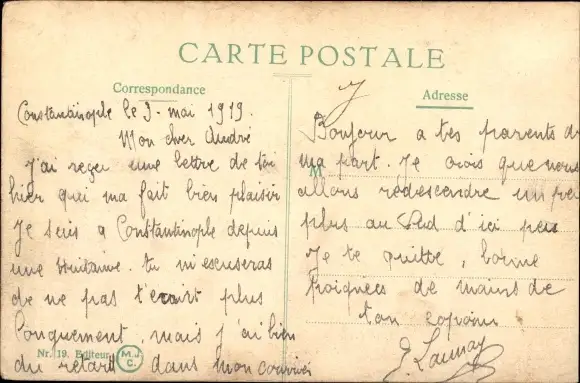 CARTE POSTALE
Correspondance
Constantinople le 9. mai 1919.
Mon cher André
J'ai reçu une lettre de toi
hier qui ma fait bien plaisir
Je suis a Constantinople depuis
une tu m'escuseras
de ne pas t'ecrire plus
longuement, mais j'ai bien
du retard dans mon courrier
Nr. 19. Editeur M.J.C.
Adresse
Bonjour a tes parents de
ma part. Je crois que nous
M
allons redescendre un peu
plus au Sud d'ici peu
Je te quitte, bonne
poignées de mains de
ton copain
J. Launay